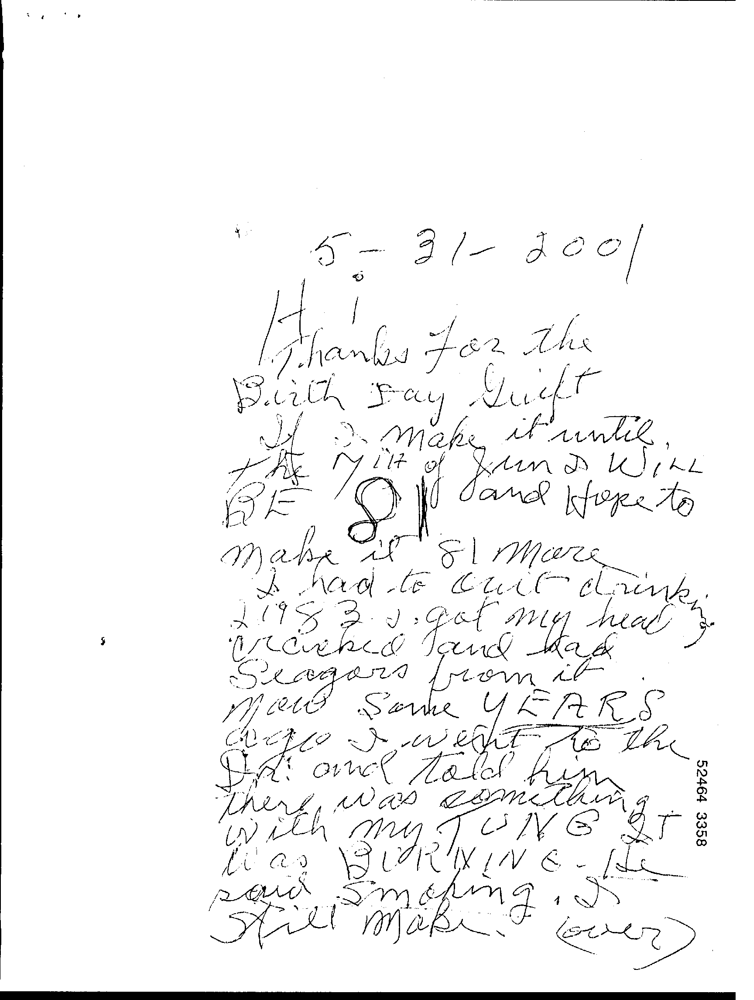 5-31-2001
Hi
Thanks For the
Birth Day Guift
If I make it until
the 7 of Jun I WILL
BE 81 and Hope to
make it 81 more
I had to quit drinking
1983 I got my head
cracked and had
Seagars from it
now Some YEARS
ago I went to the
Dr. and told him
there was something
with my TUNG IT
was BURNING - He
said Smoking. I
Still Make. (over)
52464 3358